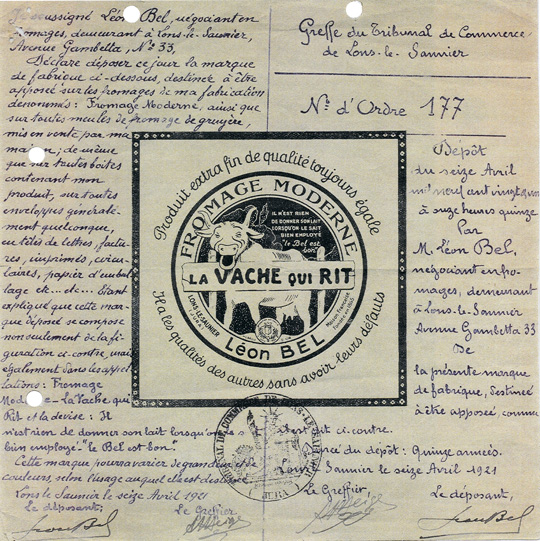 Je soussigné Léon Bel, négociant en
fromages, demeurant à Lons-le-Saunier,
Avenue Gambetta, N° 33,
Déclare déposer ce jour la marque
de fabrique ci-dessous, destinée à être
apposée sur les fromages de ma fabrication
dénommés : Fromage Moderne, ainsi que
sur toutes meules de fromage de gruyère,
mis en vente par ma
maison ; de même
que sur toutes boîtes
contenant mon
produit, sur toutes
enveloppes générale-
ment quelconque,
en têtes de lettres, factu-
res, imprimés, circu-
laires, papier d'embal-
lage etc... etc... Étant
expliqué que cette mar-
que déposée se compose
non seulement de la fi-
guration ci-contre, mais
également dans les appel-
lations : Fromage
Moderne - la Vache qui
Rit et la devise : Il
n'est rien de donner son lait lorsqu'on
bien employé "le Bel est bon".
Cette marque pourra varier de grandeur
couleurs, selon l'usage auquel elle est destinée
Lons le Saunier le seize Avril 1921
le déposant, Le Greffier
Léon Bel
Produit extra fin de qualité toujours égale
FROMAGE MODERNE
IL N'EST RIEN
DE DONNER SON LAIT
LORSQU'ON LE SAIT
BIEN EMPLOYÉ
"le Bel est
bon"
LA VACHE QUI RIT
LONS-LE-SAUNIER
Léon BEL
Il a les qualités des autres sans avoir leurs défauts
Greffe du Tribunal de Commerce
de Lons-le-Saunier
N° d'Ordre 177
Depôt
du seize Avril
mil neuf cent vingt un
à onze heures quinze
Par
M. Léon Bel,
négociant en fro-
mages, demeurant
à Lons-le-Saunier
Avenue Gambetta 33
De
la présente marque
de fabrique, destinée
à être apposée comme
est dit ci-contre.
du dépôt : Quinze années.
Lons Saunier le seize Avril 1921
Le Greffier, Le déposant,
Léon Bel
JURA